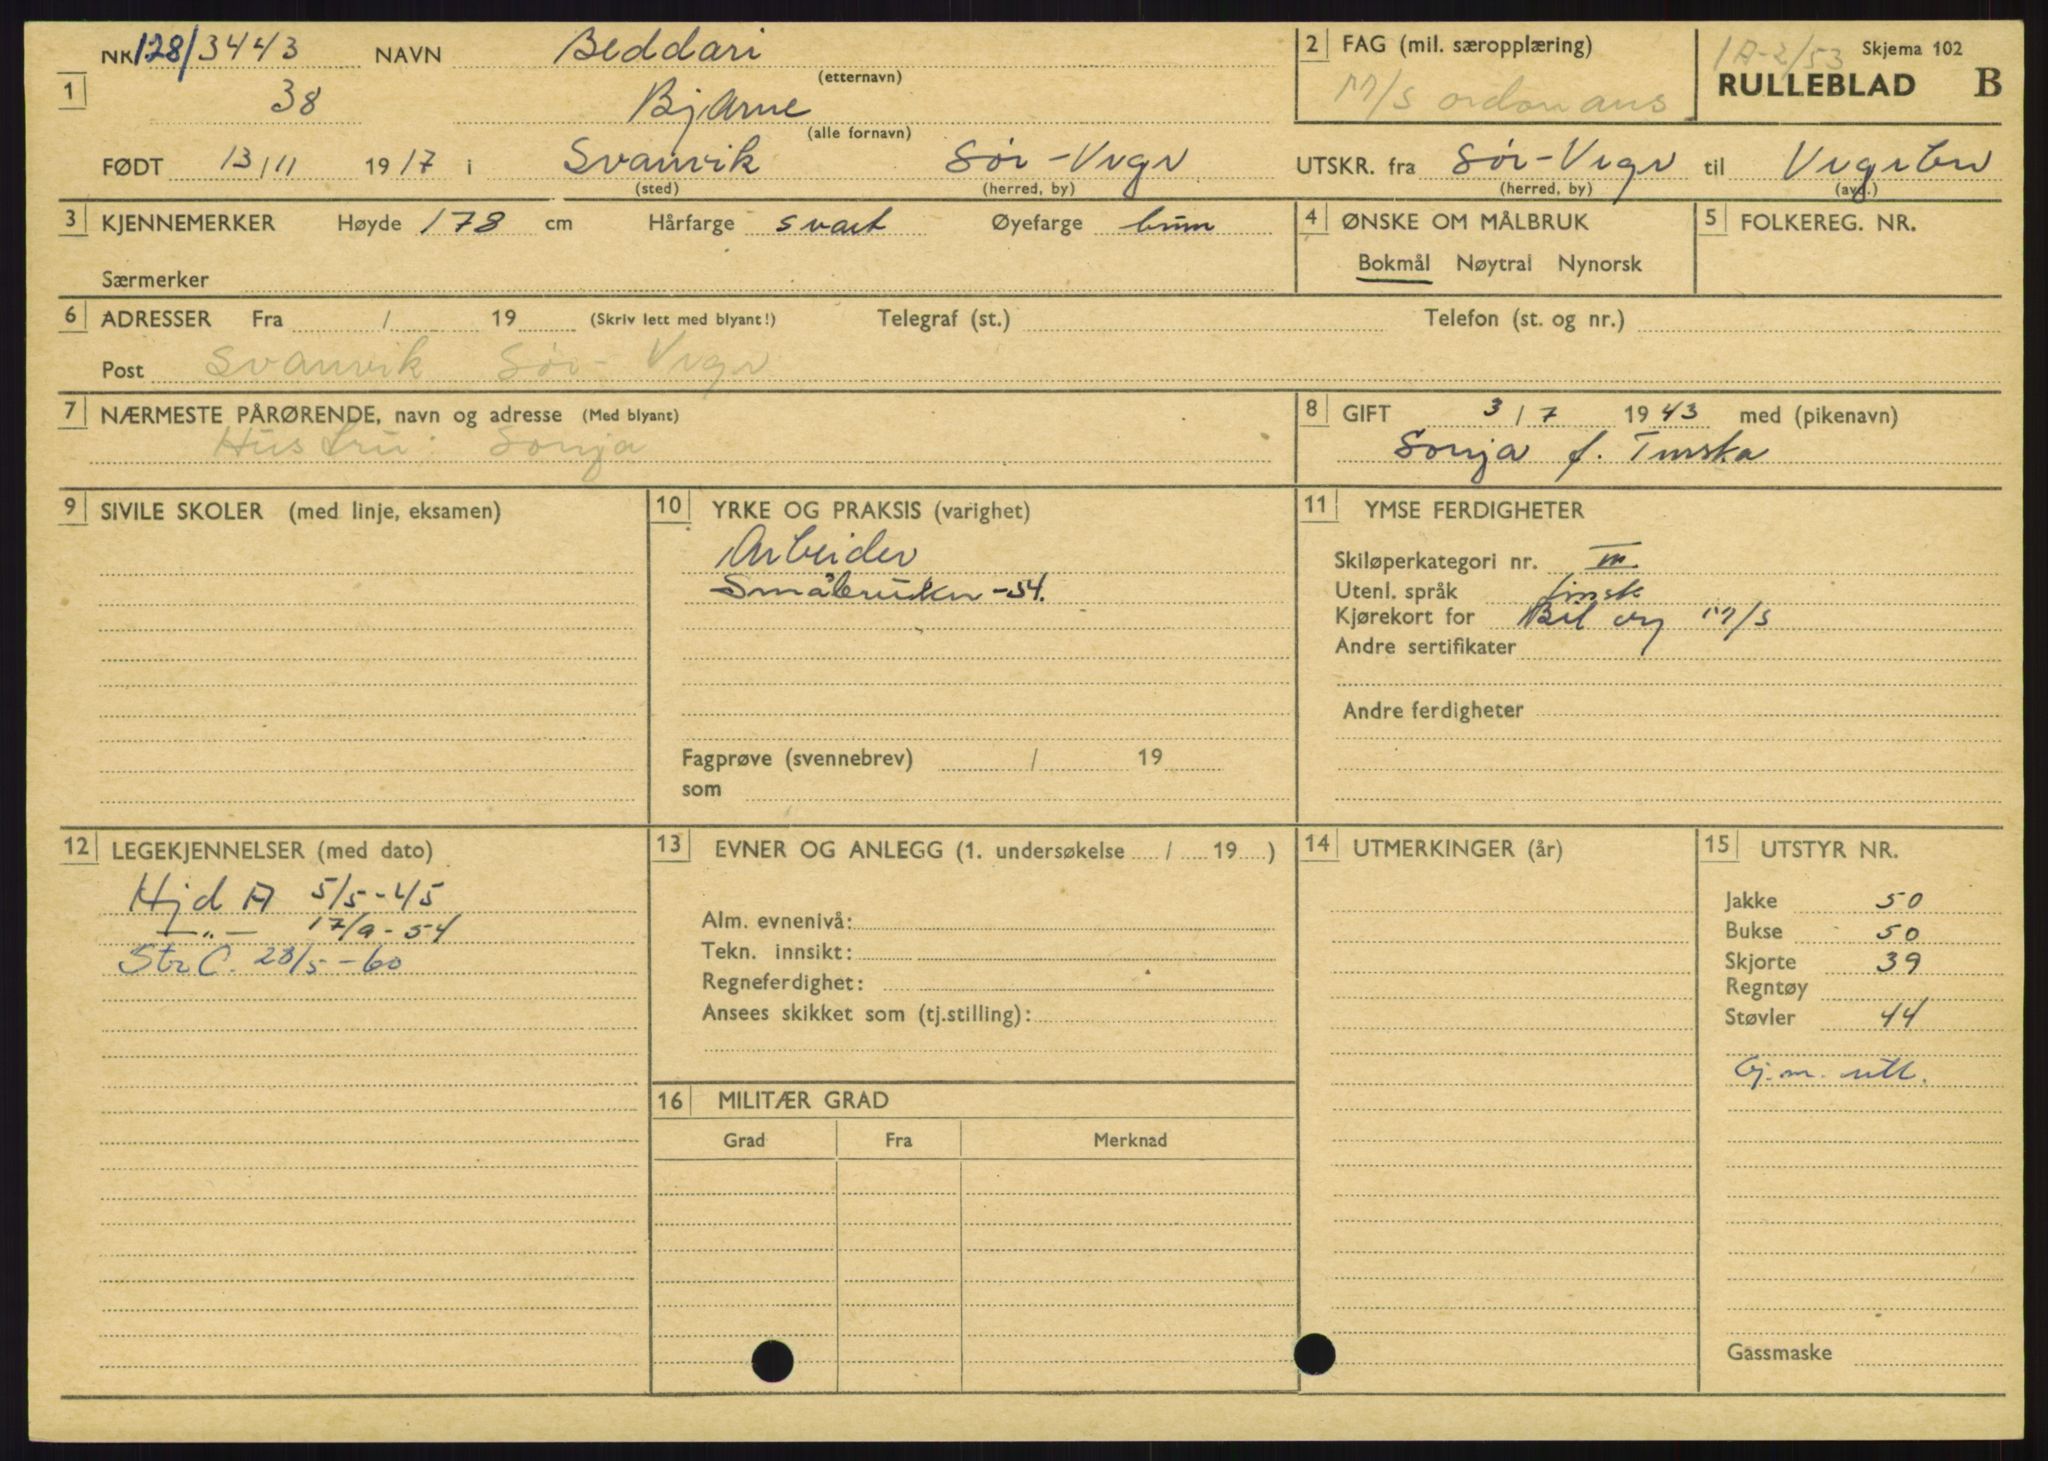 NR 128/3443 NAVN Beddari (etternavn)
1 38 Bjarne (alle fornavn)
FØDT 13/11 1917 i Svanvik (sted) Sør-Vrgr (herred, by)
2 FAG (mil. særopplæring)
M/S ordonans
1A-2/53 Skjema 102
RULLEBLAD B
UTSKR. fra Sør-Vrgr (herred, by) til Vrgrbn (avd.)
3 KJENNEMERKER Høyde 178 cm Hårfarge svart Øyefarge brun
Særmerker
4 ØNSKE OM MÅLBRUK
Bokmål Nøytral Nynorsk
5 FOLKEREG. NR.
6 ADRESSER Fra / 19 (Skriv lett med blyant!) Telegraf (st.) Telefon (st. og nr.)
Post Svanvik Sør-Vrgr
7 NÆRMESTE PÅRØRENDE, navn og adresse (Med blyant)
Hustru: Sonja
8 GIFT 3/7 1943 med (pikenavn)
Sonja f.
9 SIVILE SKOLER (med linje, eksamen)
10 YRKE OG PRAKSIS (varighet)
Arbeider
Småbruker -54.
Fagprøve (svennebrev) / 19
som
11 YMSE FERDIGHETER
Skiløperkategori nr. III
Utenl. språk finsk
Kjørekort for Bil og M/S
Andre sertifikater
Andre ferdigheter
12 LEGEKJENNELSER (med dato)
Hjd A 5/5-45
—"— 17/9-54
Str C. 28/5-60
13 EVNER OG ANLEGG (1. undersøkelse / 19 )
Alm. evnenivå:
Tekn. innsikt:
Regneferdighet:
Ansees skikket som (tj.stilling):
14 UTMERKINGER (år)
15 UTSTYR NR.
Jakke 50
Bukse 50
Skjorte 39
Regntøy
Støvler 44
Gj.m. utl.
Gassmaske
16 MILITÆR GRAD
Grad Fra Merknad